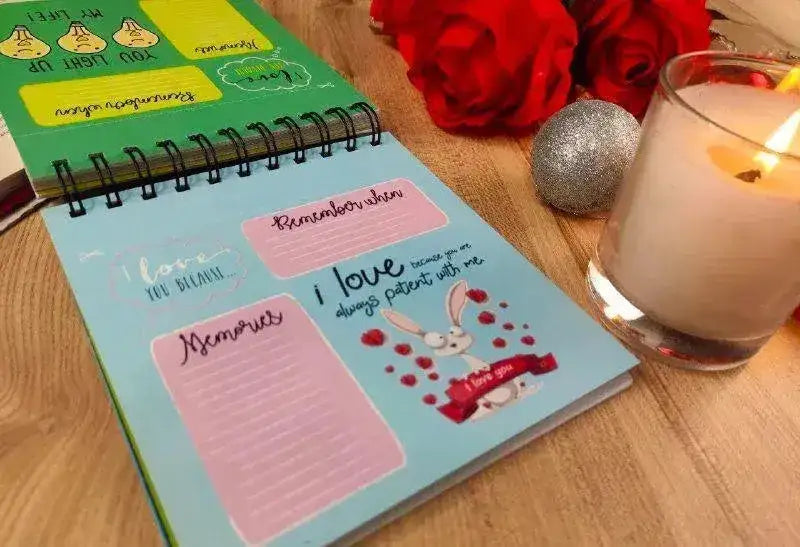 YOU LIGHT UP
MY LIFE!
Memories
Remember when
I love
Remember when
I love
YOU BECAUSE...
i love because you are
always patient with me
Memories
I love you